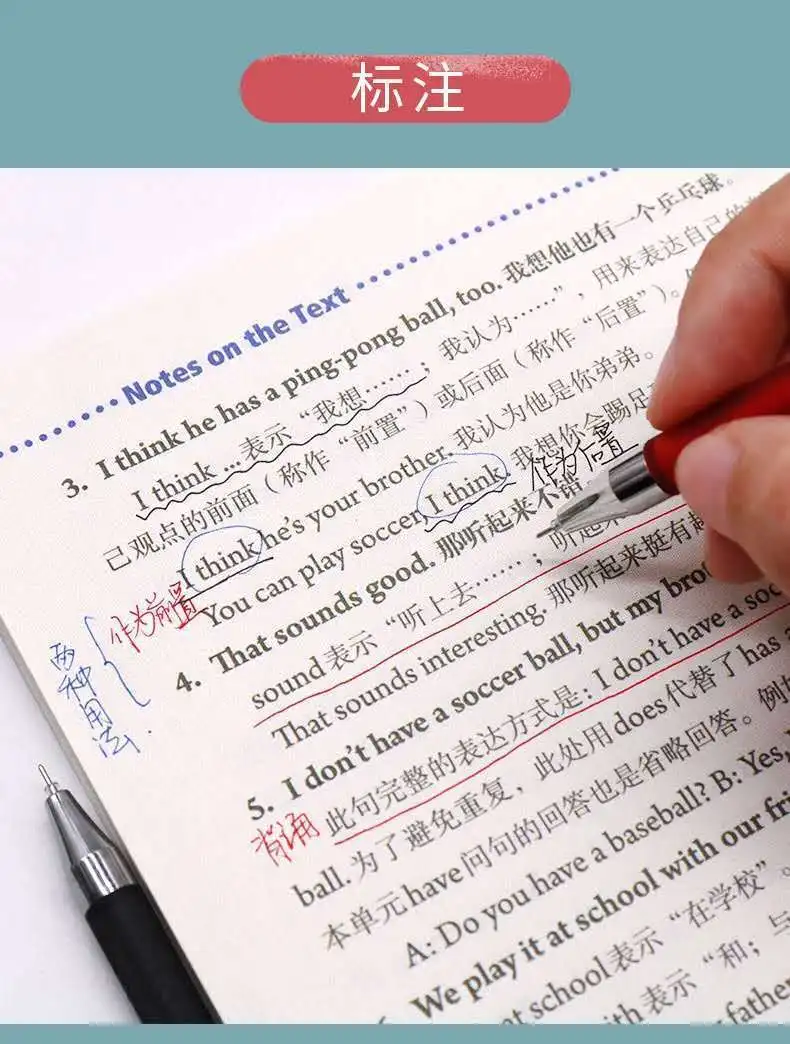 标注
Notes on the Text
3. I think he has a ping-pong ball, too. 我想他也有一个乒乓球。
I think ... 表示“我想……；我认为……”，用来表达自己的
己观点的前面（称作“前置”）或后面（称作“后置”）。
I think he's your brother. 我认为他是你弟弟。
You can play soccer, I think. 我想你会踢足
作为后置
作为前置
两种用法
4. That sounds good. 那听起来不错
sound表示“听上去……；听起来
That sounds interesting. 那听起来挺有趣
5. I don't have a soccer ball, but my bro
背诵
此句完整的表达方式是：I don't have a soc
ball.为了避免重复，此处用does代替了has a
本单元have问句的回答也是省略回答。例如
A: Do you have a baseball? B: Yes,
We play it at school with our fri
at school表示“在学校”。
ith表示“和；与
father